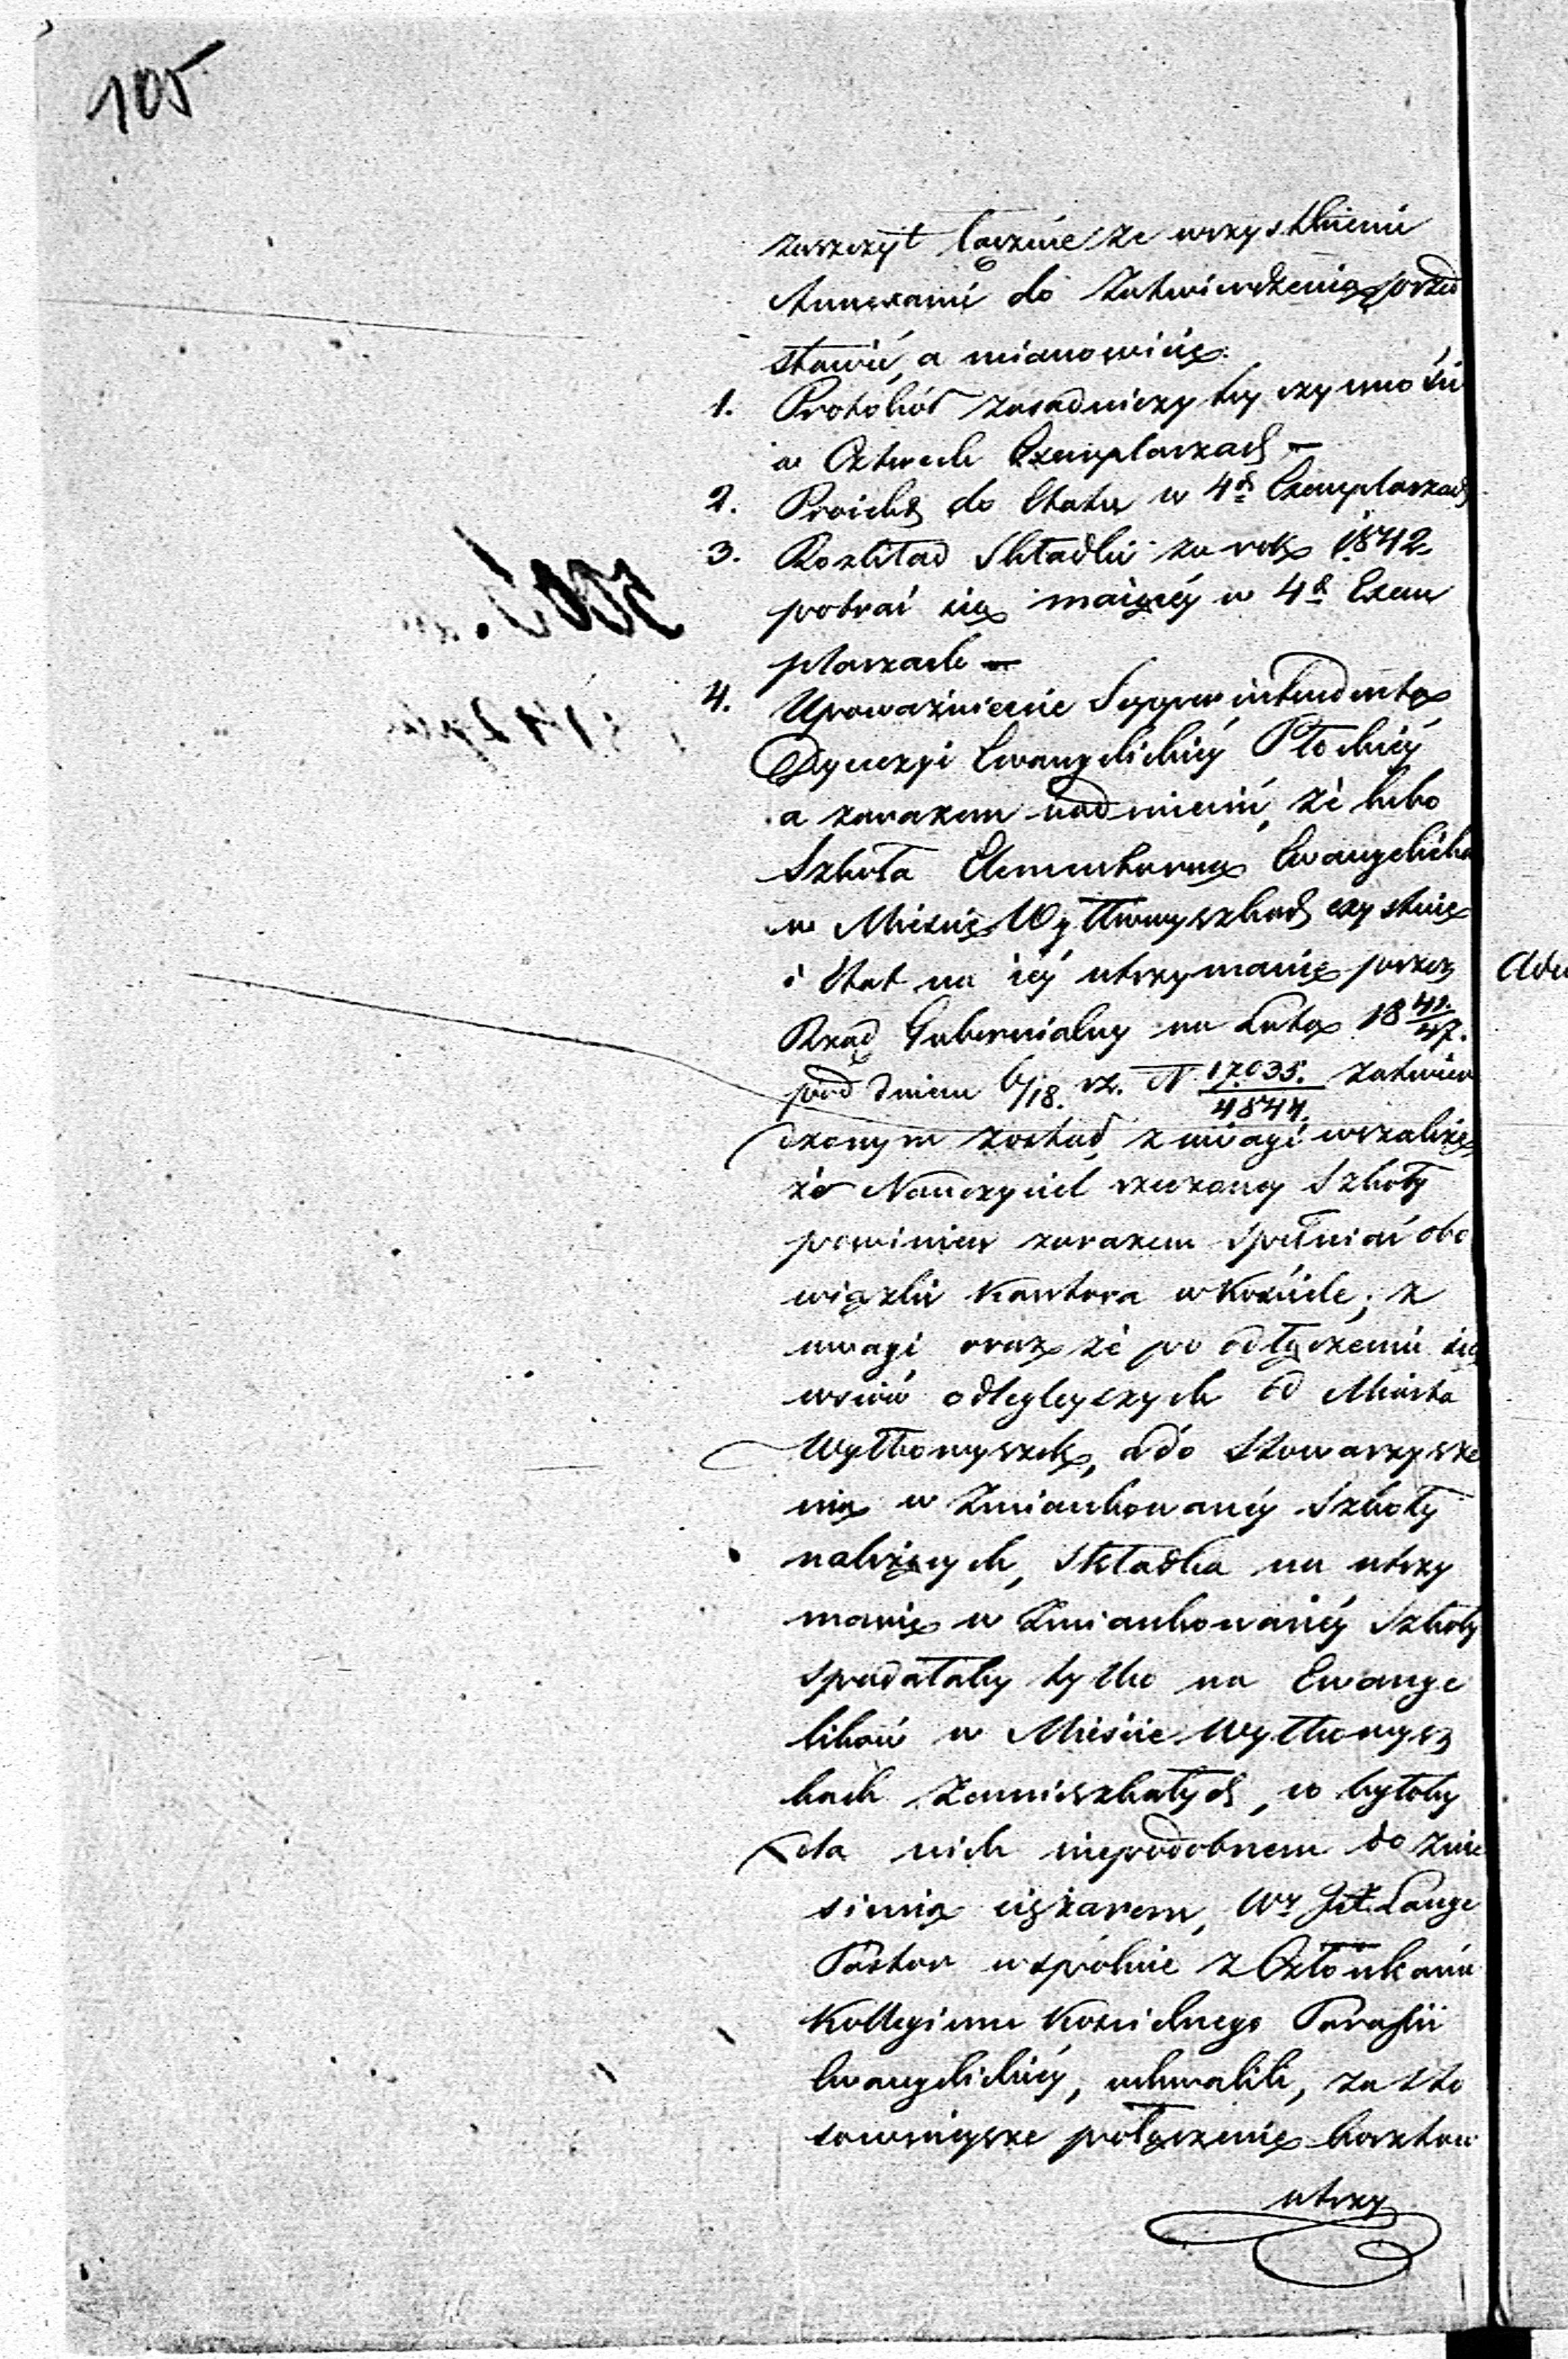 105
zaszczyt łącznie ze wszystkiemi
Annexami do Zatwierdzenia przed
stawić, a mianowicie:
1. Protokół zasadniczy tey czynności
w Cztrech Exemplarzach —
2. Proiekt do Etatu w 4ch Exemplarzach
3. Rozkład Składki za rok 1842
pobrać się maiącey w 4ch Exem
plarzach —
4. Upoważnienie Superintendenta
Dyecezyi Ewangelickiey Płockiey
a zarazem nadmienić, że lubo
Szkoła Elementarna Ewangelicka
w Mieście Wytkowyszkach exystuie
i Etat na iey utrzymanie przez
Rząd Gubernialny na Lata 18 41/47.
pod dniem 6/18. rz. N 17035./4844. zatwier
dzonym został, z uwagi wszakże
że Nauczyciel rzeczoney Szkoły
powinien zarazem spełniać obo
wiązki Kantora w Kościele; z
uwagi oraz że po odłączeniu się
wsiów odległeyszych od Miasta
Wytkowyszek, a do Stowarzysze
nia w Zmiankowaney Szkoły
należących, Składka na utrzy
manie w Zmiankowaney Szkoły
spadałaby tylko na Ewange
lików w Mieście Wytkowysz
kach Zamieszkałych, co byłoby
dla nich niepodobnem do znie
sienia ciężarem, Wy Lange
Pastor wspólnie z Członkami
Kollegium Kościelnego Parafii
Ewangelickiey, uchwalili, za sto
sownieysze połączenie kosztów
utrzy